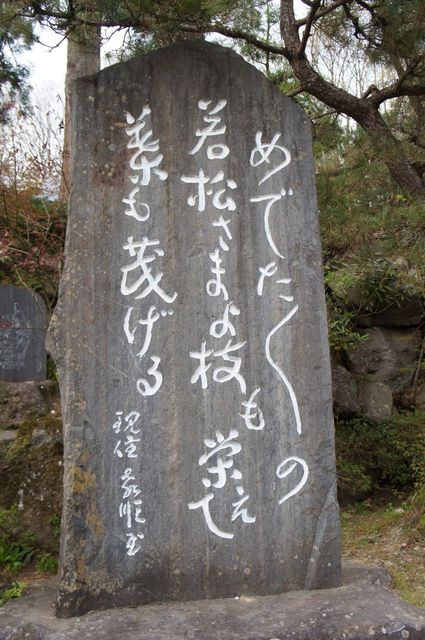 めでた〱の
若松さまよ枝も栄えて
葉も茂げる
現住